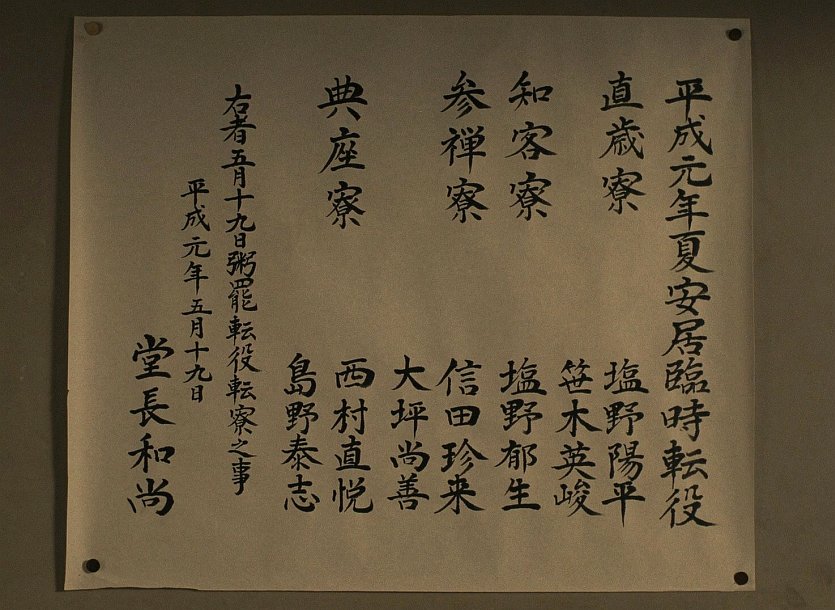 平成元年夏安居臨時転役
直歳寮 塩野陽平
笹木英峻
知客寮 塩野郁生
参禅寮 信田珍来
大坪尚善
典座寮 西村直悦
島野泰志
右者五月十九日粥罷転役転寮之事
平成元年五月十九日
堂長和尚